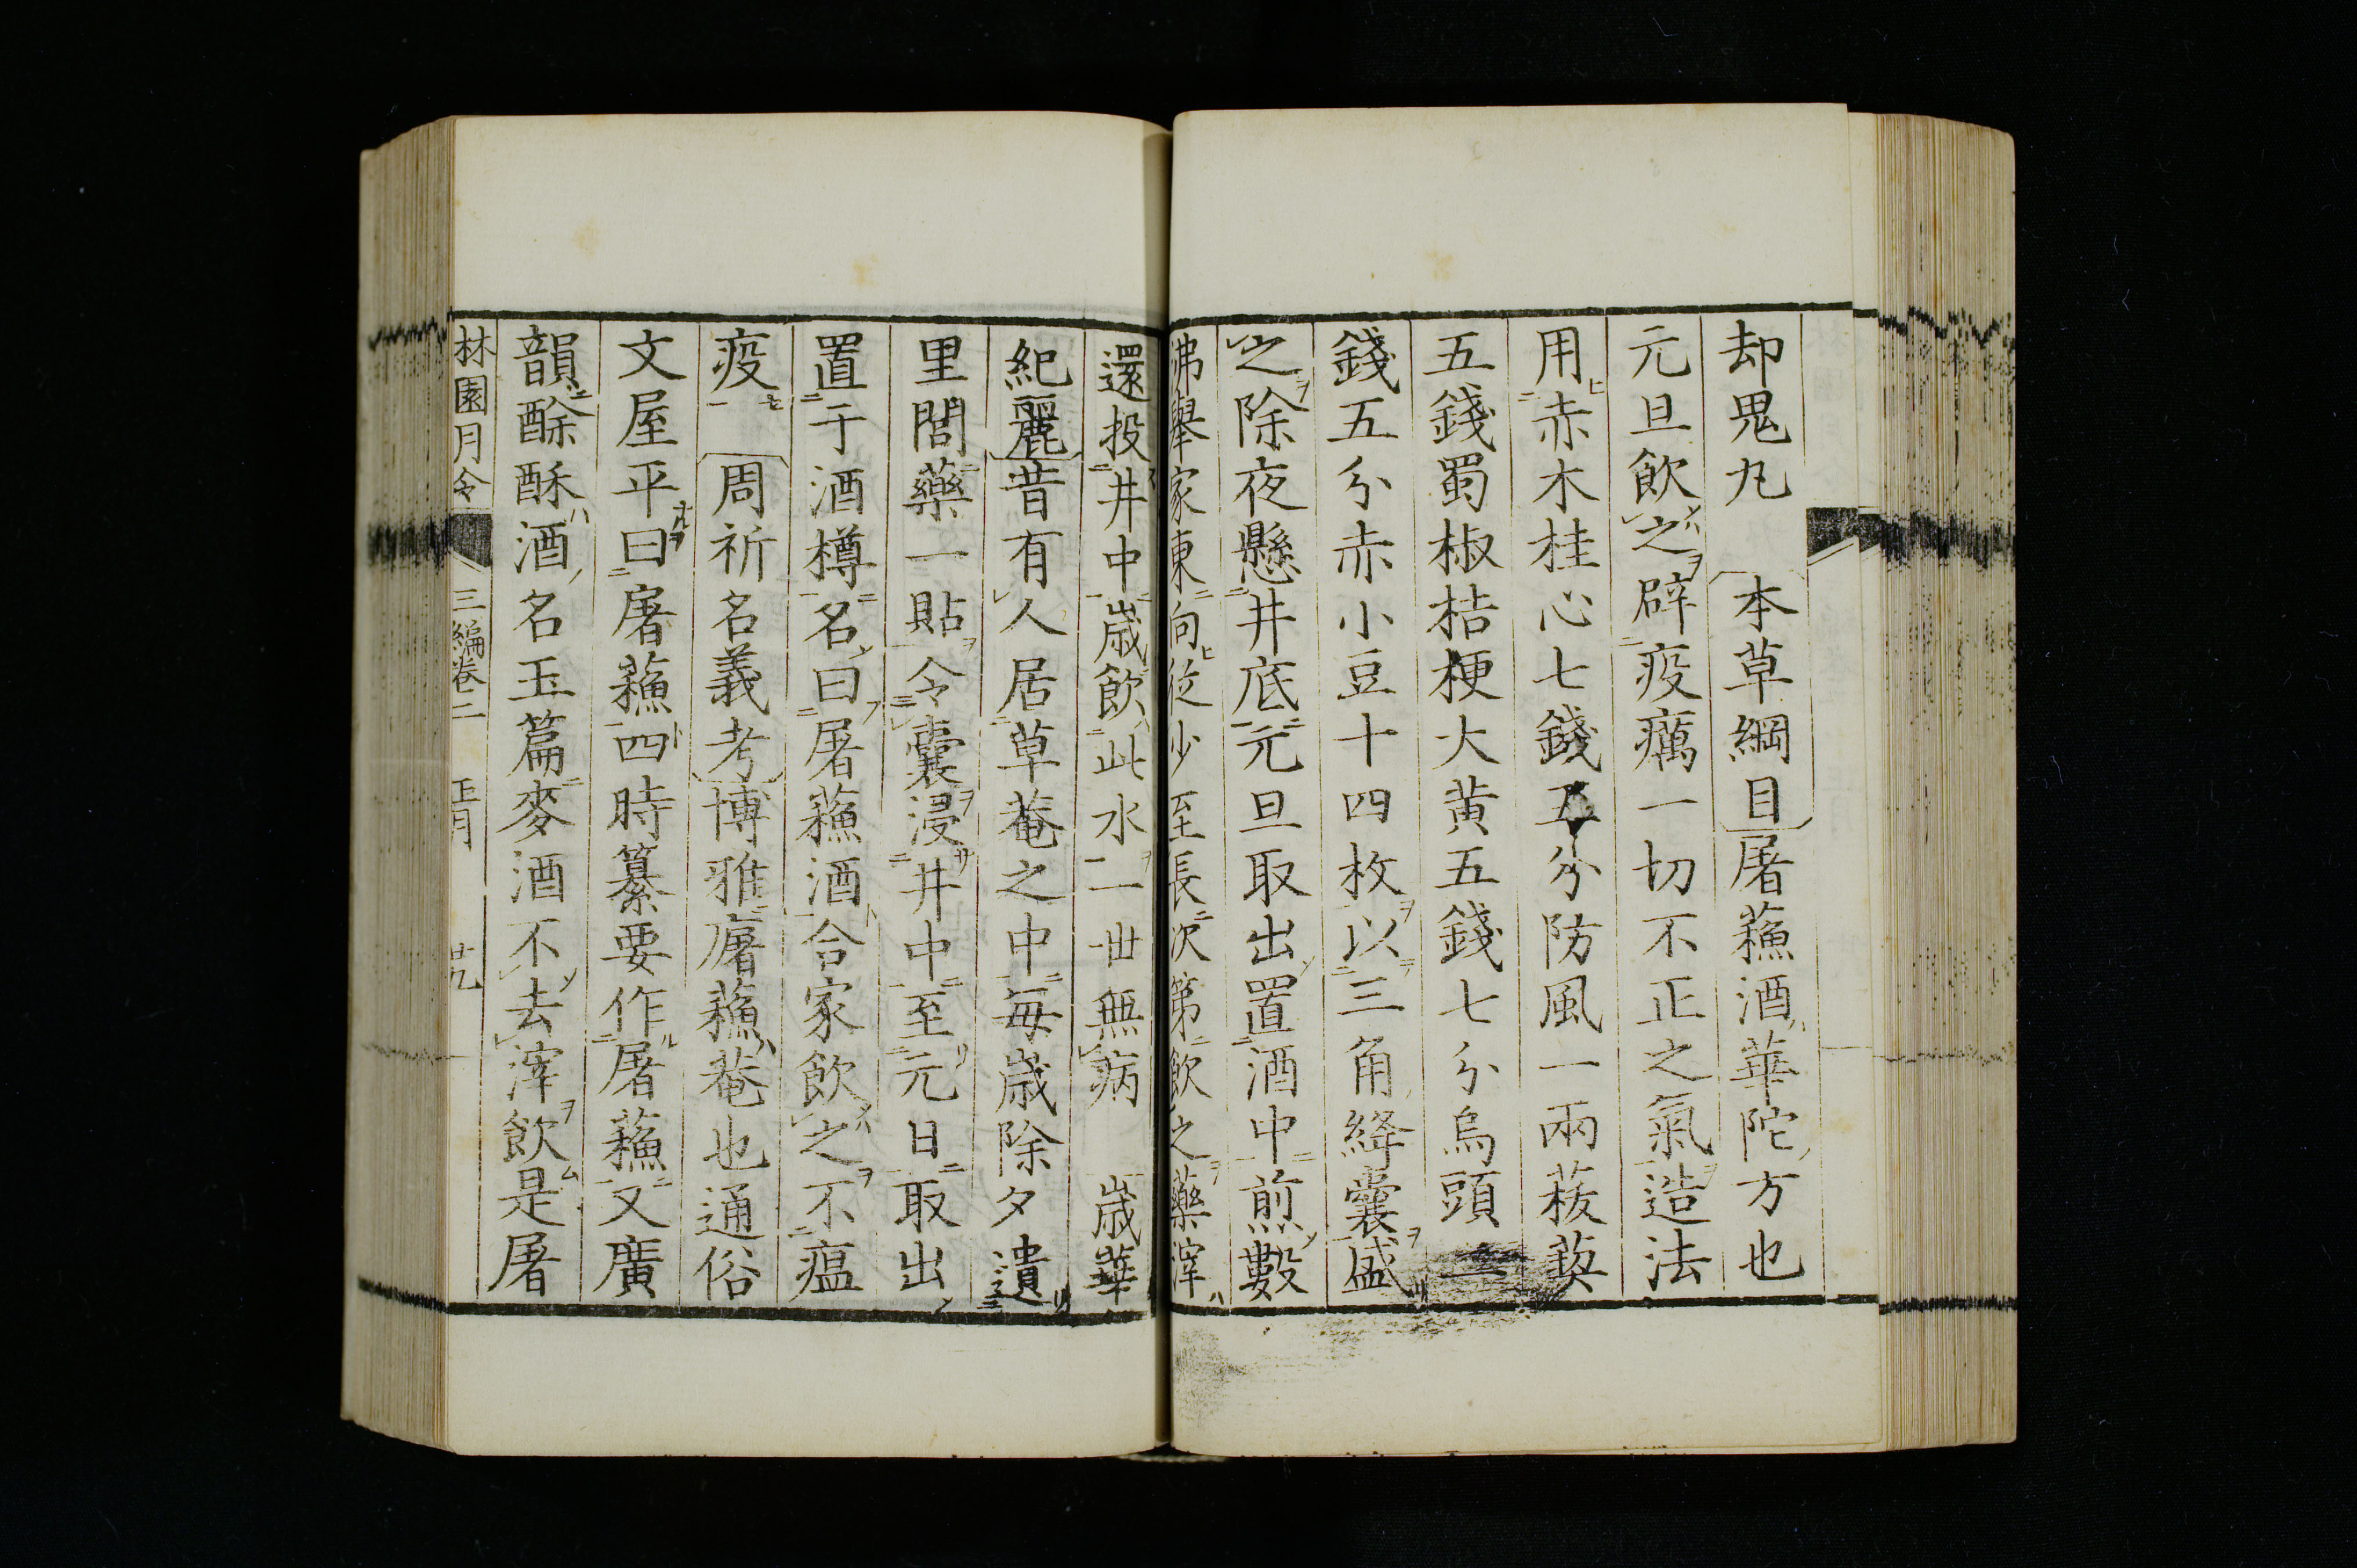 却鬼丸 本草綱目屠蘓酒華陀方也
元旦飲之辟疫癘一切不正之氣造法
用赤木桂心七錢五分防風一兩菝葜
五錢蜀椒桔梗大黄五錢七分烏頭二
錢五分赤小豆十四枚以三角絳囊盛
之除夜懸井底元旦取出置酒中煎數
沸舉家東向從少至長次第飲之藥滓
還投井中歳飲此水一世無病 歳華
紀麗昔有人居草菴之中每歳除夕遺
里閭藥一貼令囊浸井中至元日取出
置于酒樽名曰屠蘓酒合家飲之不瘟
疫 周祈名義考博雅廜蘓菴也通俗
文屋平曰屠蘓四時纂要作屠蘓又廣
韻酴酥酒名玉篇麥酒不去滓飲是屠
林園月令 三編卷二 正月 廿九